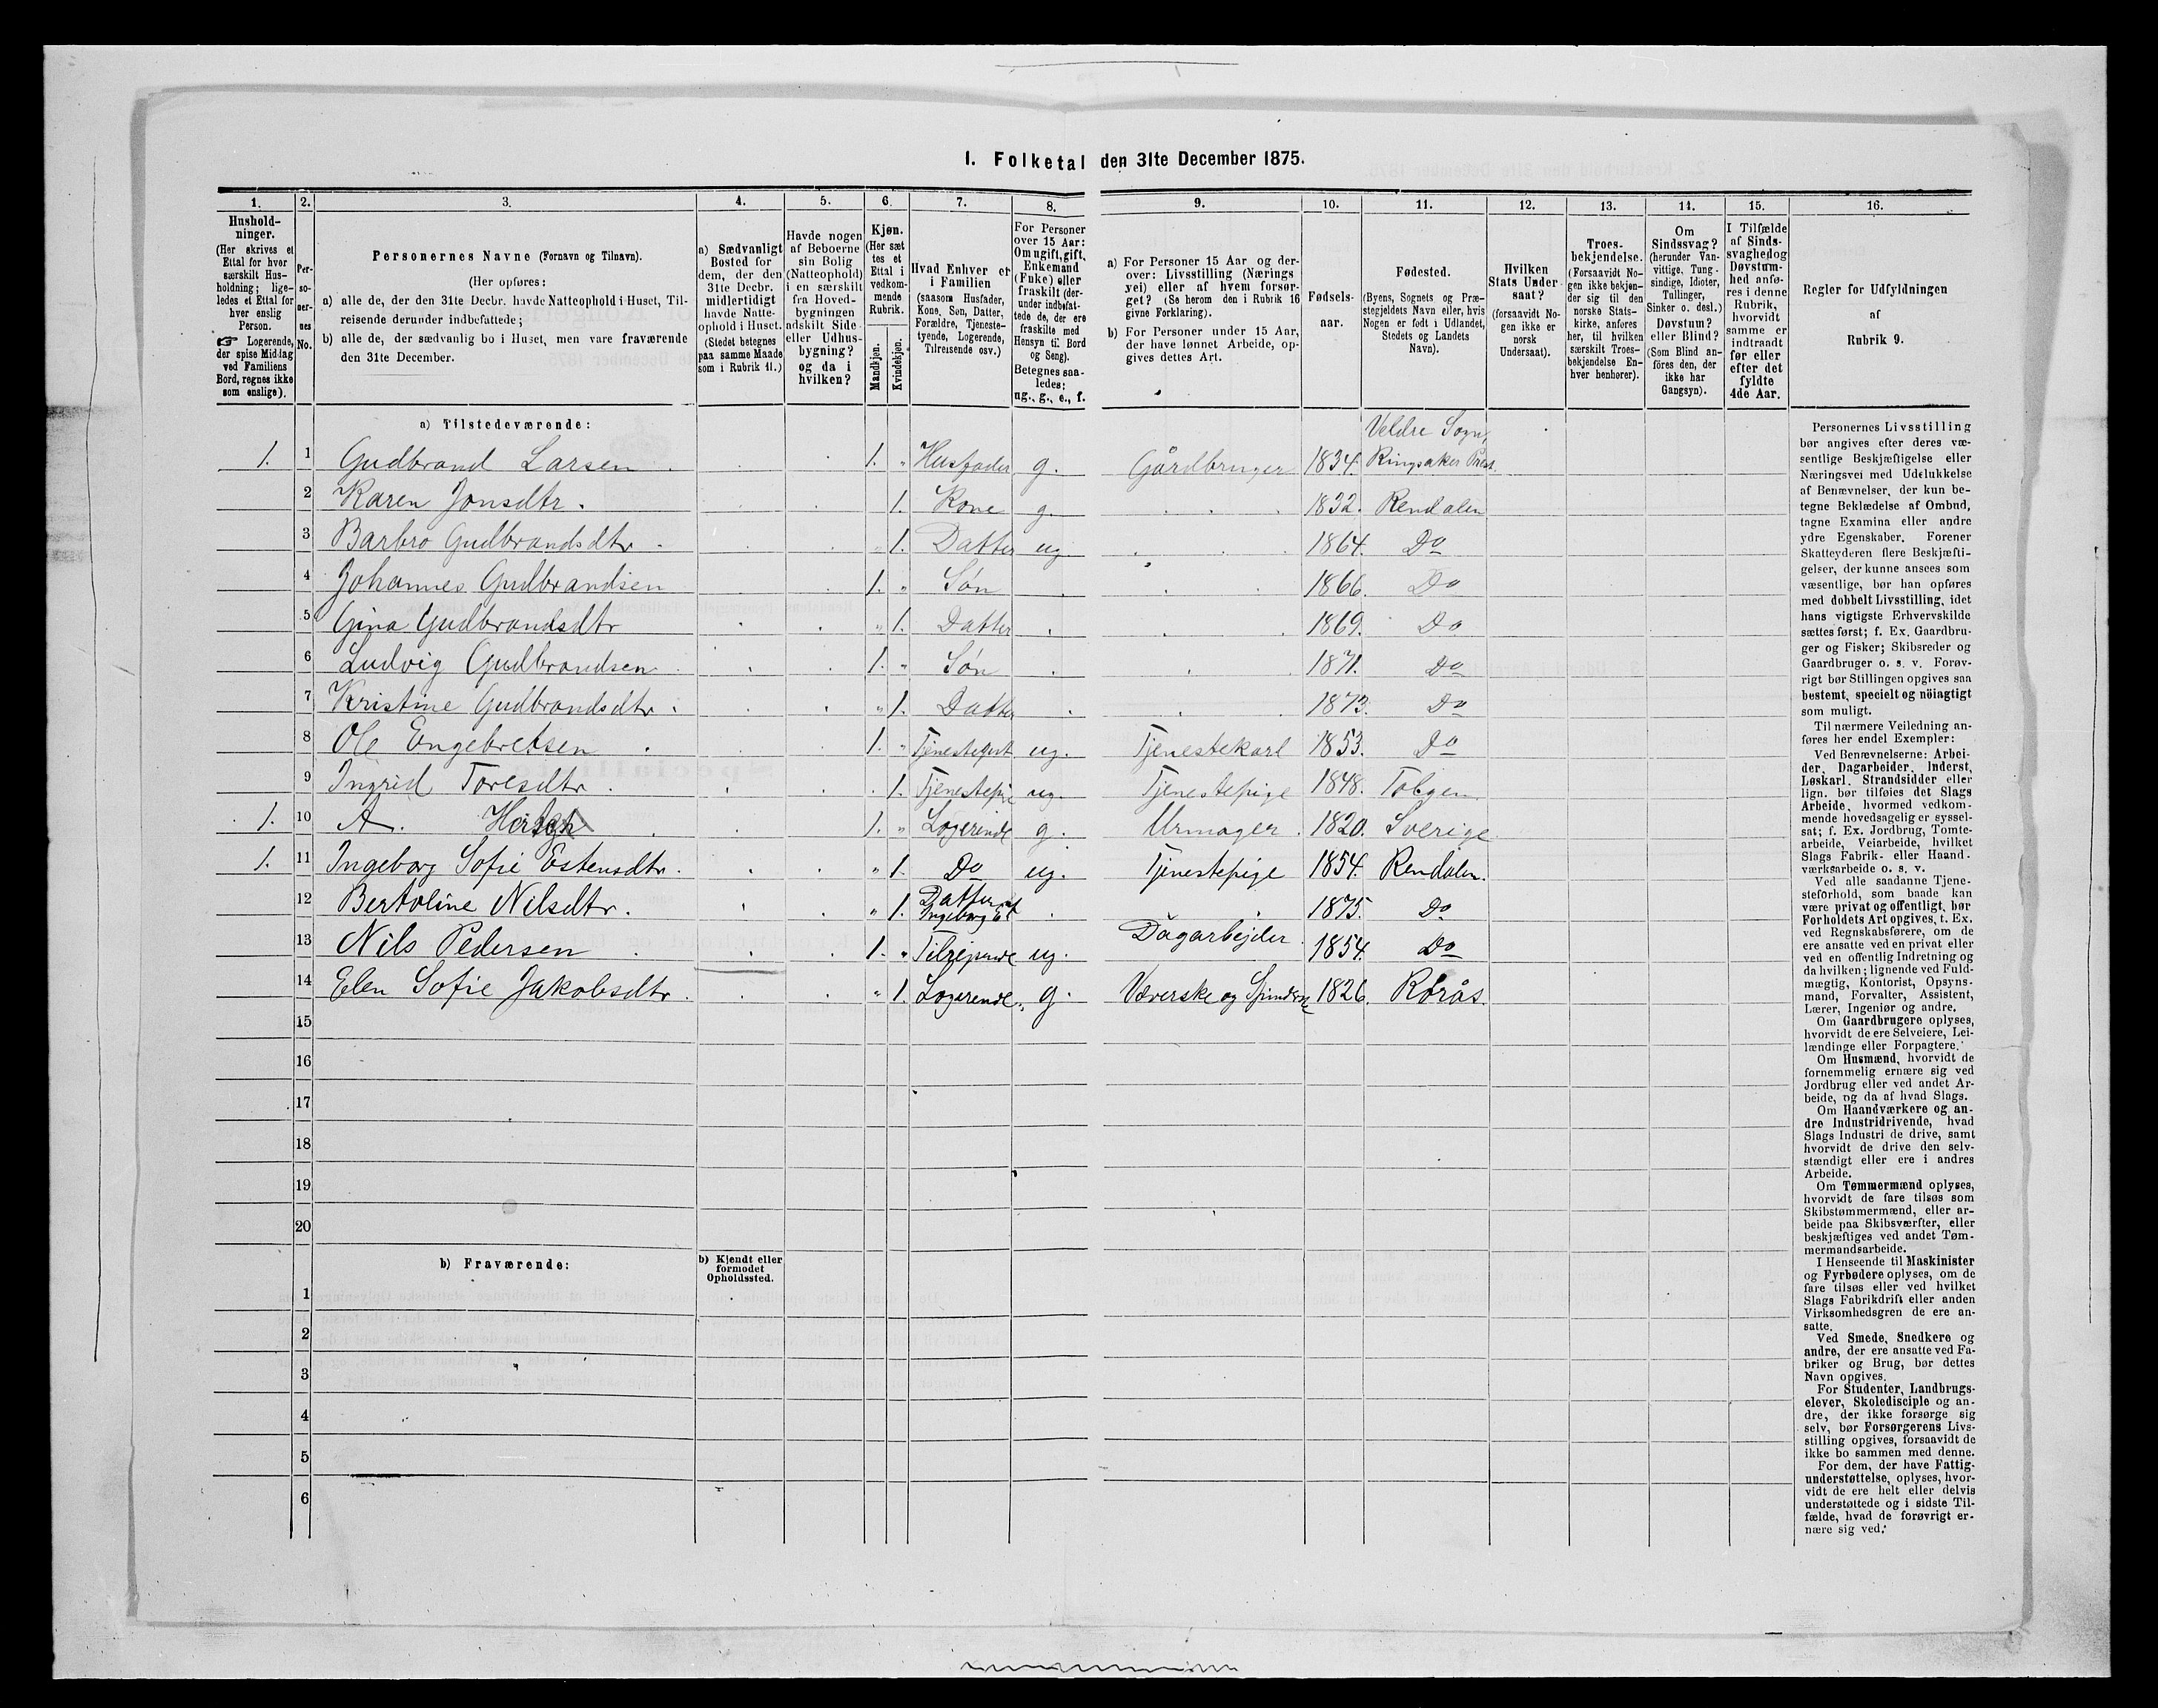 1. Folketal den 31te December 1875.
1. 2. 3. 4. 5. 6. 7. 8. 9. 10. 11. 12. 13. 14. 15. 16.
Hushold-
ninger.
(Her skrives et
Ettal for hver
særskilt Hus-
holdning; lige-
ledes et Ettal for
hver enslig
Person.
☞ Logerende,
der spise Middag
ved Familiens
Bord, regnes ikke
som enslige).
Per-
so-
ner-
nes
No.
Personernes Navne (Fornavn og Tilnavn).
(Her opføres:
a) alle de, der den 31te Decbr. havde Natteophold i Huset, Til-
reisende derunder indbefattede;
b) alle de, der sædvanlig bo i Huset, men vare fraværende
den 31te December.
a) Sædvanligt
Bosted for
dem, der den
31te Decbr.
midlertidigt
havde Natte-
ophold i Huset.
(Stedet betegnes
paa samme Maade
som i Rubrik 11.)
Havde nogen
af Beboerne
sin Bolig
(Natteophold)
i en særskilt
fra Hoved-
bygningen
adskilt Side-
eller Udhus-
bygning?
og da i
hvilken?
Kjøn.
(Her sæt-
tes et
Ettal i
vedkom-
mende
Rubrik.
Mandkjøn.
Kvindekjøn.
Hvad Enhver er
i Familien
(saasom Husfader,
Kone, Søn, Datter,
Forældre, Tjeneste-
tyende, Logerende,
Tilreisende osv.)
For Personer
over 15 Aar:
Om ugift, gift,
Enkemand
(Enke) eller
fraskilt (der-
under indbefat-
tede de, der ere
fraskilte med
Hensyn til Bord
og Seng).
Betegnes saa-
ledes:
ug., g., e., f.
a) For Personer 15 Aar og der-
over: Livsstilling (Nærings-
vei) eller af hvem forsør-
get? (Se herom den i Rubrik 16
givne Forklaring).
b) For Personer under 15 Aar,
der have lønnet Arbeide, op-
gives dettes Art.
Fødsels-
aar.
Fødested.
(Byens, Sognets og Præ-
stegjeldets Navn eller, hvis
Nogen er født i Udlandet,
Stedets og Landets
Navn).
Hvilken
Stats Under-
saat?
(forsaavidt No-
gen ikke er
norsk
Undersaat).
Troes-
bekjendelse.
(Forsaavidt No-
gen ikke bekjen-
der sig til den
norske Stats-
kirke, anføres
her, til hvilken
særskilt Troes-
bekjendelse En-
hver henhører).
Om
Sindssvag?
(herunder Van-
vittige, Tung-
sindige, Idioter,
Tullinger,
Sinker o. desl.)
Døvstum?
eller Blind?
(Som Blind an-
føres den, der
ikke har
Gangsyn).
I Tilfælde
af Sinds-
svaghed og
Døvstum-
hed anfø-
res i denne
Rubrik,
hvorvidt
samme er
indtraadt
før eller
efter det
fyldte
4de Aar.
Regler for Udfyldningen
af
Rubrik 9.
a) Tilstedeværende:
Veldre Sogn,
1. 1 Gudbrand Larsen 1. " Husfader g. Gårdbruger 1834. Ringsaker Præst
2 Karen Jonsdtr. 1. Kone g. 1832. Rendalen
3 Barbro Gudbrandsdtr " 1. Datter ug. 1864. Do
4 Johannes Gudbrandsen 1. " Søn 1866. Do
5 Gina Gudbrandsdtr " 1. Datter 1869. Do
6 Ludvig Gudbrandsen 1. " Søn 1871. Do
7 Kristine Gudbrandsdtr " 1. Datter 1873. Do
8 Ole Engebretsen 1. " ug. Tjenestekarl 1853. Do
9 Ingrid Toresdtr 1. Tjenestepie ug. Tjenestepige 1848. Tolgen
1. 10 A. 1. " Logerende g. Urmager 1820. Sverige
1. 11 Ingeborg Sofie Estensdtr. " 1. Do ug. Tjenestepige 1854. Rendalen.
12 Bertoline Nilsdtr. " 1. Datter af Ingeborg E 1875. Do
13 Nils Pedersen 1. " Tilrejsende ug. Dagarbejder 1854. Do
14 Elen Sofie Jakobsdtr. " 1. Logerende g. Væverske og Spinderske 1826. Rorås.
15
16
17
18
19
20
b) Fraværende:
b) Kjendt eller
formodet
Opholdssted.
1
2
3
4
5
6
Personernes Livsstilling
bør angives efter deres væ-
sentlige Beskjæftigelse eller
Næringsvei med Udelukkelse
af Benævnelser, der kun be-
tegne Beklædelse af Ombud,
tagne Examina eller andre
ydre Egenskaber. Forener
Skatteyderen flere Beskjæfti-
gelser, der kunne ansees som
væsentlige, bør han opføres
med dobbelt Livsstilling, idet
hans vigtigste Erhvervskilde
sættes først; f. Ex. Gaardbru-
ger og Fisker; Skibsreder og
Gaardbruger o. s. v. Forøv-
rigt bør Stillingen opgives saa
bestemt, specielt og nöiagtigt
som muligt.
Til nærmere Veiledning an-
føres her endel Exempler:
Ved Benævnelserne: Arbei-
der, Dagarbeider, Inderst,
Løskarl, Strandsidder eller
lign. bør tilføies det Slags
Arbeide, hvormed vedkom-
mende hovedsagelig er syssel-
sat; f. Ex. Jordbrug, Tomte-
arbeide, Veiarbeide, hvilket
Slags Fabrik- eller Haand-
værksarbeide o. s. v.
Ved alle saadanne Tjene-
steforhold, som baade kan
være privat og offentligt, bør
Forholdets Art opgives, t. Ex.
ved Regnskabsførere, om de
ere ansatte ved en privat eller
ved en offentlig Indretning og
da hvilken; lignende ved Fuld-
mægtig, Kontorist, Opsyns-
mand, Forvalter, Assistent,
Lærer, Ingeniør og andre.
Om Gaardbrugere oplyses,
hvorvidt de ere Selveiere, Lei-
lændinge eller Forpagtere.
Om Husmænd, hvorvidt de
fornemmelig ernære sig ved
Jordbrug eller ved andet Ar-
beide, og da af hvad Slags.
Om Haandværkere og an-
dre Industridrivende, hvad
Slags Industri de drive, samt
hvorvidt de drive den selv-
stændigt eller ere i andres
Arbeide.
Om Tømmermænd oplyses,
hvorvidt de fare tilsøs som
Skibstømmermænd, eller ar-
beide paa Skibsværfter, eller
beskjæftiges ved andet Tøm-
mermandsarbeide.
I Henseende til Maskinister
og Fyrbødere oplyses, om de
fare tilsøs eller ved hvilket
Slags Fabrikdrift eller anden
Virksomhedsgren de ere an-
satte.
Ved Smede, Snedkere og
andre, der ere ansatte ved Fa-
briker og Brug, bør dettes
Navn opgives.
For Studenter, Landbrugs-
elever, Skoledisciple og an-
dre, der ikke forsørge sig
selv, bør Forsørgerens Livs-
stilling opgives, forsaavidt de
ikke bo sammen med denne.
For dem, der have Fattig-
understøttelse, oplyses, hvor-
vidt de ere helt eller delvis
understøttede og i sidste Til-
fælde, hvad de forøvrigt er-
nære sig ved.